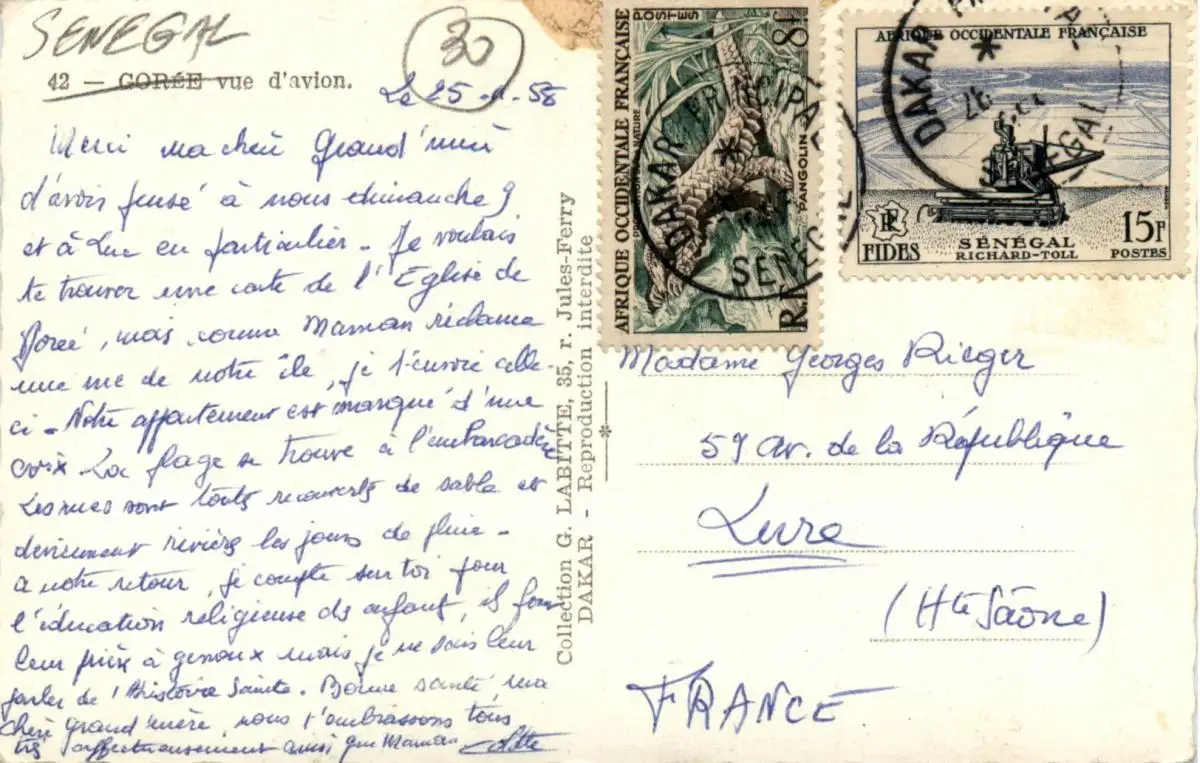 SENEGAL
30
42 — GORÉE vue d'avion.
Le 25-
Merci ma chère Grand'mère
d'avoir pensé à nous dimanche 9
et à Luc en particulier - Je voulais
te trouver une carte de l'Eglise de
Gorée, mais comme Maman réclame
une vue de notre île, je t'envoie celle-
ci - Notre appartement est marqué d'une
croix La plage se trouve à l'embarcadère
Les rues sont toutes recouvertes de sable et
deviennent rivières les jours de pluie -
A notre retour, je compte sur toi pour
l'éducation religieuse des enfants, ils font
leur prière à genoux mais je ne sais leur
parler de l'Histoire Sainte. Bonne santé, ma
chère Grand'mère, nous t'embrassons tous
très affectueusement ainsi que Maman
Collection G. LABITTE, 35, r. Jules-Ferry
DAKAR - Reproduction interdite
AFRIQUE OCCIDENTALE FRANÇAISE
POSTES
8F
PANGOLIN
DAKAR PRINCIPAL
SENEGAL
AFRIQUE OCCIDENTALE FRANÇAISE
DAKAR
SENEGAL
FIDES
SÉNÉGAL
RICHARD-TOLL
15F
POSTES
Madame Georges Rieger
59 av. de la République
Lure
(Hte Saône)
FRANCE